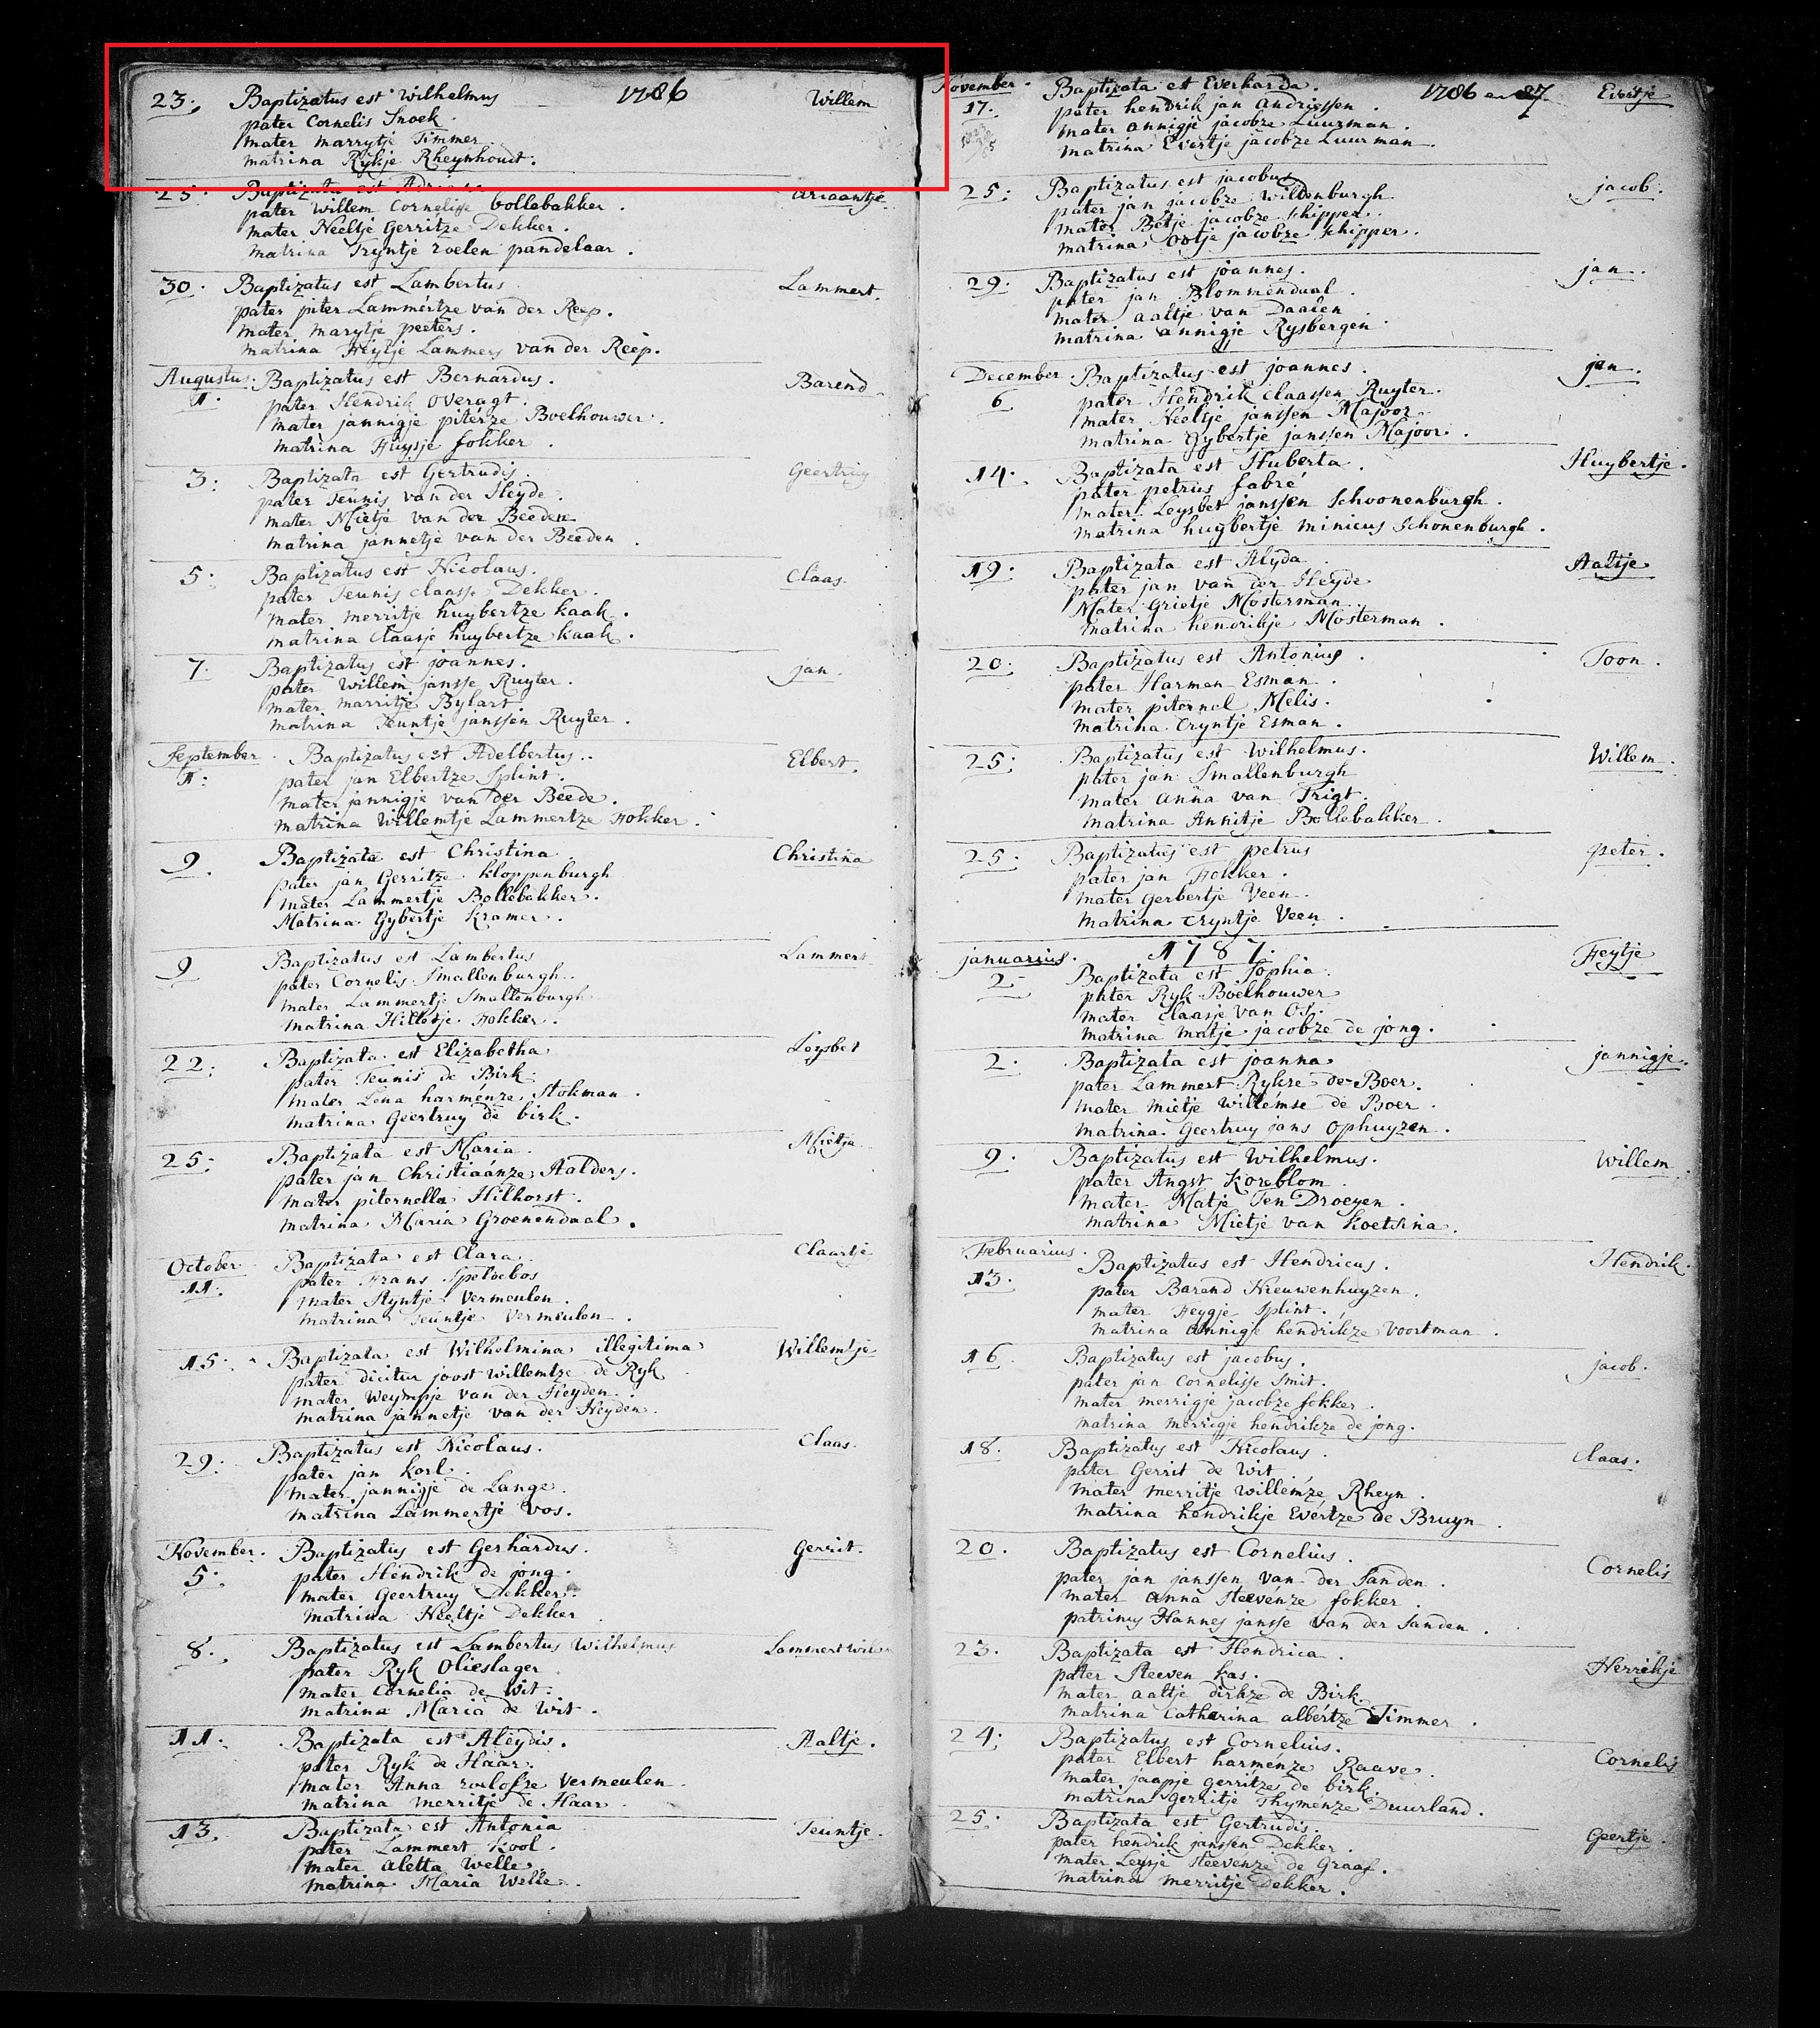 23. Baptizatus est Wilhelmus 1786 Willem
pater Cornelis Snoek.
mater marrytje Timmer
matrina Rykje Rheynhout.
25. Baptizata est Adriana Ariaantje
pater Willem Cornelisse bollebakker.
mater Neeltje Gerritze Dekker.
matrina Tryntje roelen pandelaar.
30. Baptizatus est Lambertus Lammert.
pater piter Lammertze van der Reep.
mater marytje peeters.
matrina Heyltje Lammers van der Reep.
Augustus. Baptizatus est Bernardus. Barend
1. pater Hendrik Overagt.
mater jannigje piterze Boelhouwer.
matrina Huysje fokker.
3. Baptizata est Gertrudis. Geertruy
pater Teunis van der Heyde.
mater Mietje van der Beeden
matrina jannetje van der Beeden.
5. Baptizatus est Nicolaus. Claas.
pater Teunis claasse Dekker.
mater merritje huybertze kaak.
matrina Claasje huybertze kaak.
7. Baptizatus est joannes. jan.
pater Willem jansse Ruyter.
mater marritje Bylart
matrina Teuntje janssen Ruyter.
September. Baptizatus est Adelbertus. Elbert.
1. pater jan Elbertze Splint.
mater jannigje van der Beede.
matrina Willemtje Lammertze Fokker.
9. Baptizata est Christina Christina
pater jan Gerritze kloppenburgh
mater Lammertje Bollebakker.
Matrina Gybertje Kramer.
9 Baptizatus est Lambertus Lammert
pater Cornelis Smallenburgh.
mater Lammertje Smallenburgh
matrina Hilletje Fokker.
22. Baptizata est Elizabetha Leysbet
pater Teunis de Birk.
mater Lena harmenze Stokman.
matrina Geertruy de birk.
25. Baptizata est Maria. Mietje
pater jan Christiaanze Aalders.
mater piternella Hilhorst.
matrina Maria Groenendaal.
October Baptizata est Clara. Claartje
11. pater Frans Speldebos
mater Styntje Vermeulen.
matrina Teuntje Vermeulen.
15. Baptizata est Wilhelmina illegitima Willemtje
pater dicitur joost willemtze de Ryk
mater Weympje van der Heyden.
matrina jannetje van der Heyden.
29. Baptizatus est Nicolaus. Claas.
pater jan Korl.
mater jannigje de Lange.
matrina Lammertje Vos.
November. Baptizatus est Gerhardus. Gerrit.
5. pater Hendrik de jong.
mater Geertruy Dekker.
matrina Neeltje Dekker
8. Baptizatus est Lambertus Wilhelmus Lammert Willem
pater Ryk Olieslager
mater Cornelia de Wit.
matrina Maria de Wit.
11. Baptizata est Aleydis. Aaltje.
pater Ryk de Haar.
mater Anna roelofze Vermeulen
matrina merritje de Haar
13. Baptizata est Antonia Teuntje.
pater Lammert Kool.
mater Aletta Welle.
matrina Maria Welle.
November. Baptizata est Everharda. 1786 en 87 Evertje
17. pater hendrik jan Andriessen.
mater annigje jacobze Luurman.
matrina Evertje jacobze Luurman.
25. Baptizatus est jacobus jacob.
pater jan jacobze Wildenburgh
mater Betje jacobze schipper.
matrina Ootje jacobze schipper.
29. Baptizatus est joannes. jan.
pater jan Blommendaal.
mater Aaltje van Daalen
matrina annigje Rysbergen
December. Baptizatus est joannes. jan.
6 pater Hendrik claassen Ruyter.
mater Neeltje janssen Majoor
matrina Gybertje janssen Majoor.
14. Baptizata est Huberta. Huybertje.
pater petrus fabré
mater Leysbet janssen Schoonenburgh.
matrina hugbertje minicus Schonenburgh.
19. Baptizata est Alyda Aaltje
pater jan van der Heyde
Mater Grietje Mosterman.
matrina hendrikje Mosterman.
20. Baptizatus est Antonius. Toon.
pater Harmen Esman.
mater piternel Melis.
matrina Tryntje Esman.
25. Baptizatus est Wilhelmus. Willem.
pater jan Smallenburgh
mater Anna van Trigt.
matrina Annitje Bollebakker.
25. Baptizatus est petrus peter.
pater jan Fokker.
mater Gerbertje Veen.
matrina Tryntje Veen.
januarius. 1787. Feytje
2 Baptizata est Sophia.
pater Ryk Boelhouwer
mater Claasje van Os.
matrina matje jacobze de jong.
2. Baptizata est joanna jannigje.
pater Lammert Rykze de Boer.
mater mietje willemse de Boer.
matrina Geertruy jans Ophuyzen.
9. Baptizatus est Wilhelmus. Willem
pater Angst Koreblom.
mater Matje Ten Droeyen.
matrina Mietje van Koetsina.
Februarius. Baptizatus est Hendricus. Hendrik.
13. pater Barend Nieuwenhuyzen.
mater Feygje Splint.
matrina Annigje hendrikze Voortman.
16 Baptizatus est jacobus. jacob.
pater jan Cornelisse Smit.
mater merrigje jacobze fokker.
matrina merrigje hendrikze de jong.
18. Baptizatus est Nicolaus. Claas.
pater Gerrit de Wit
mater merritje Willemze Rheyn.
matrina hendrikje Evertze de Bruyn.
20. Baptizatus est Cornelius. Cornelis
pater jan janssen van der Sanden.
mater anna Steevenze fokker.
patrinus Hannes jansse van der Sanden.
23. Baptizata est Hendrica. Herrikje
pater Steeven Kas.
mater aaltje dirkze de Birk.
matrina Catharina albertze Timmer.
24. Baptizatus est Cornelius. Cornelis
pater Elbert harmenze Raave.
mater jaapje gerritze de birk.
matrina gerritje Thymenze Duurland.
25. Baptizata est Gertrudis. Geertje.
pater hendrik janssen Dekker.
mater Leysje Steevenze de Graaf.
matrina merritje Dekker.